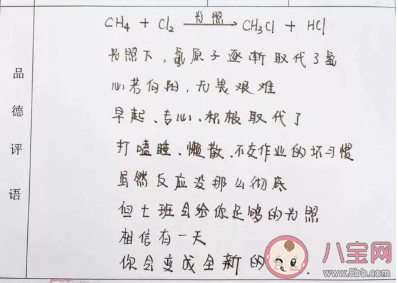 CH4 + Cl2 光照 CH3Cl + HCl
光照下，氯原子逐渐取代了氢
心若向阳，无畏艰难
早起、专心、积极取代了
打嗑睡、懒散、不交作业的坏习惯
虽然反应没那么彻底
但七班会给你足够的光照
相信有一天
你会变成全新的
品德评语
八宝网
www.8bb.com